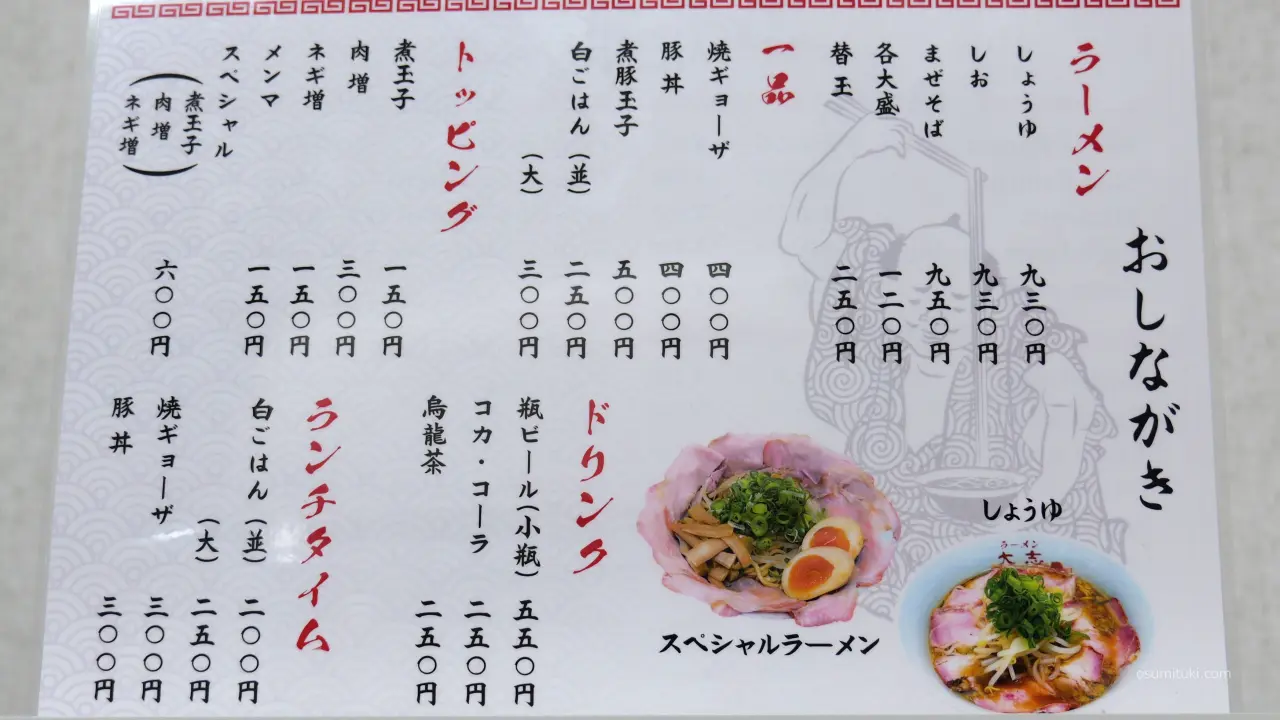 おしながき
ラーメン
しょうゆ 九三〇円
しお 九三〇円
まぜそば 九五〇円
各大盛 一二〇円
替玉 二五〇円
一品
焼ギョーザ 四〇〇円
豚丼 四〇〇円
煮豚玉子 五〇〇円
白ごはん(並) 二五〇円
(大) 三〇〇円
トッピング
煮玉子 一五〇円
肉増 三〇〇円
ネギ増 一五〇円
メンマ 一五〇円
スペシャル
(煮玉子
肉増
ネギ増) 六〇〇円
ドリンク
瓶ビール(小瓶) 五五〇円
コカ・コーラ 二五〇円
烏龍茶 二五〇円
ランチタイム
白ごはん(並) 二〇〇円
(大) 二五〇円
焼ギョーザ 三〇〇円
豚丼 三〇〇円
しょうゆ
ラーメン
大志
スペシャルラーメン
osumituki.com